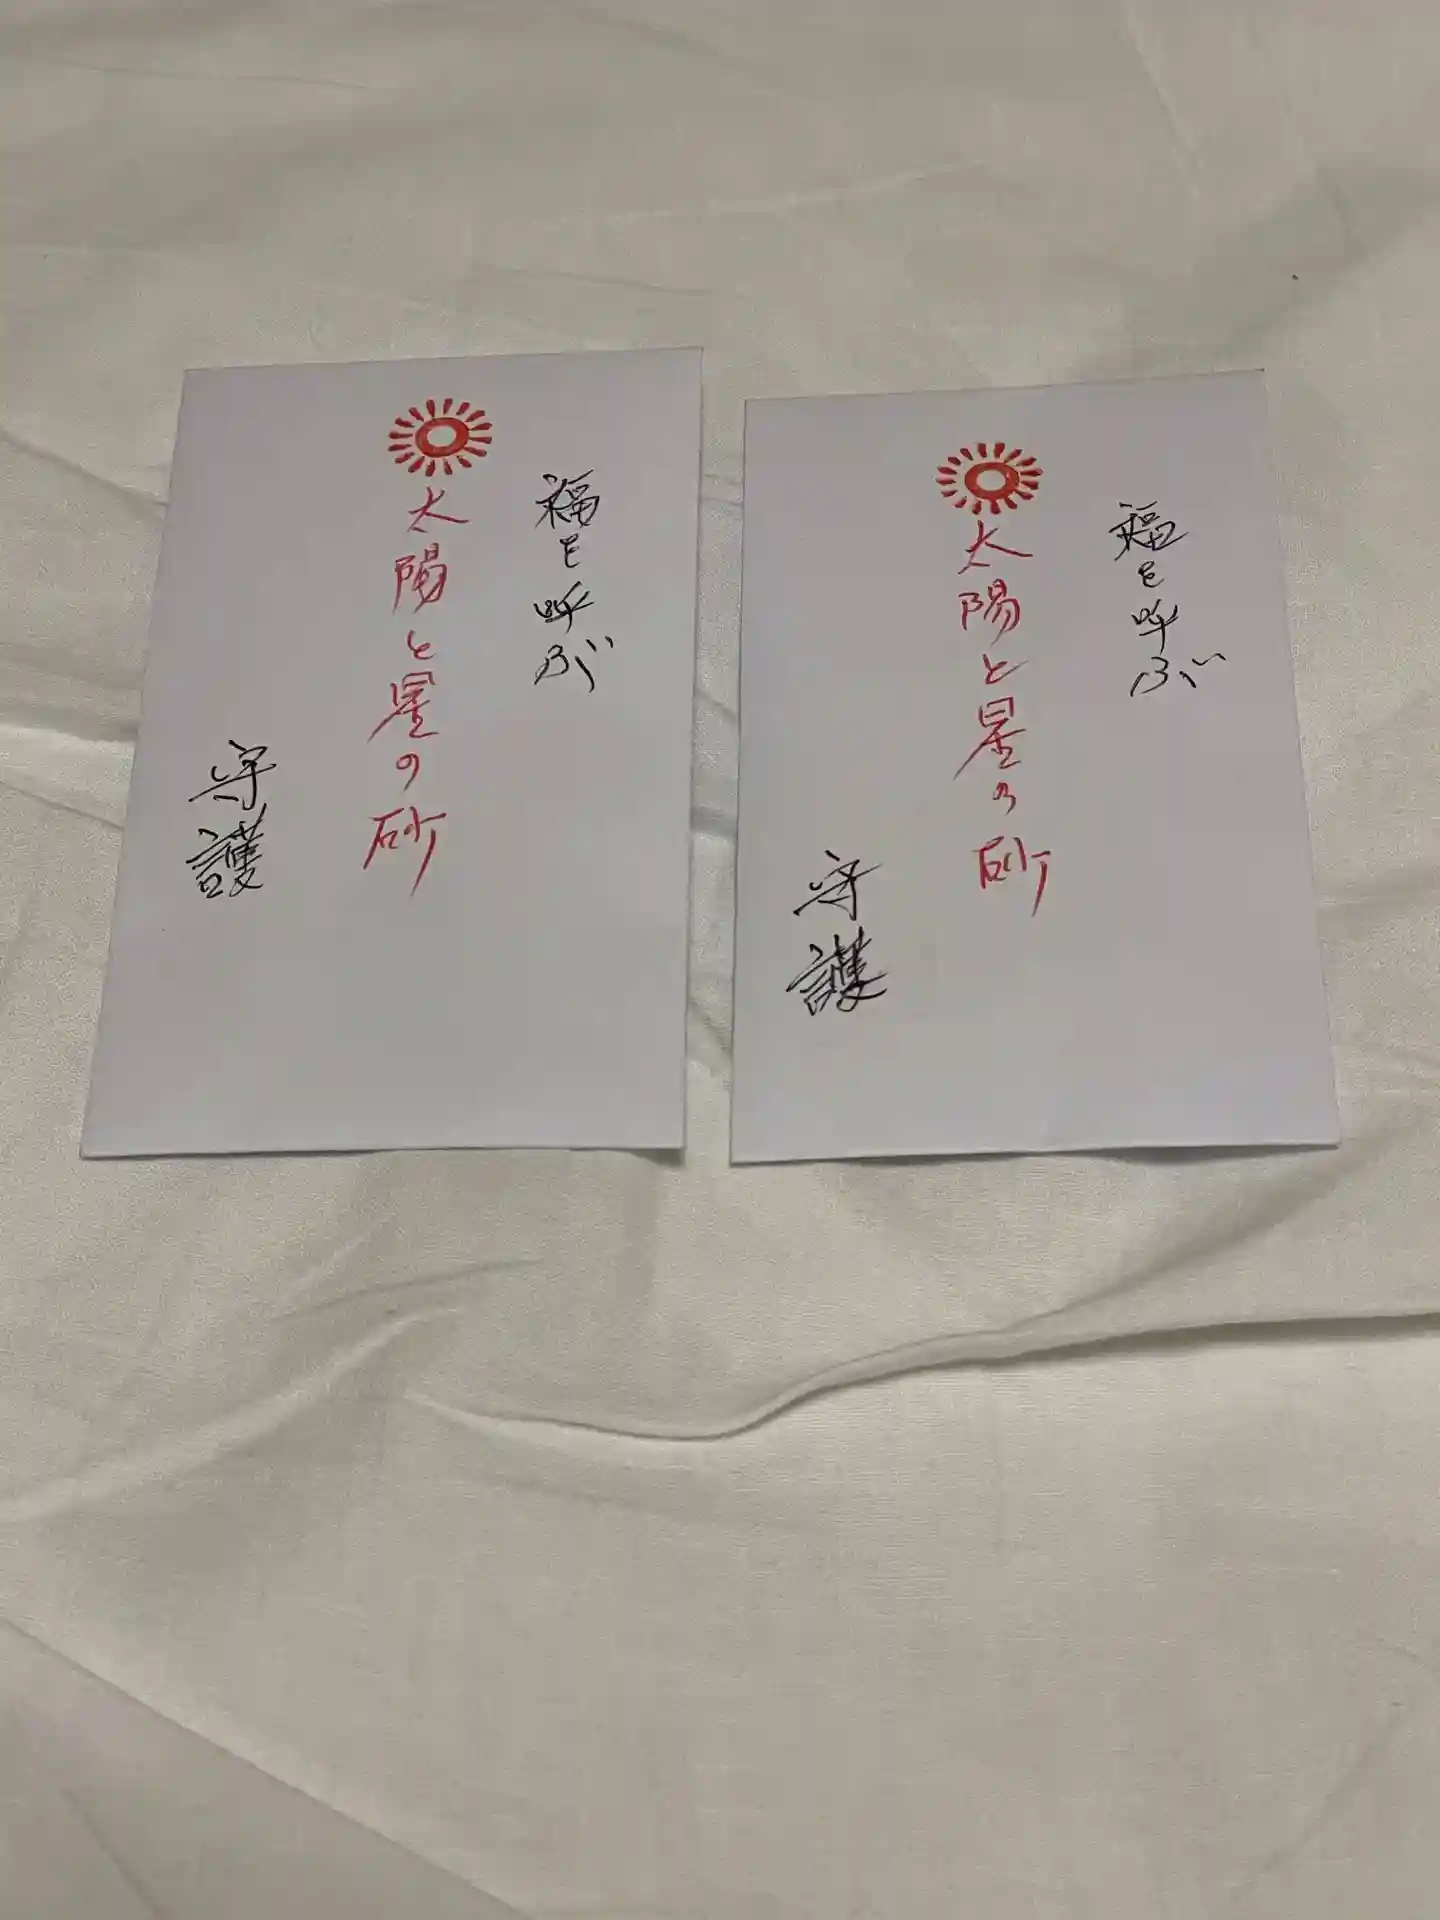 福を呼ぶ
太陽と星の砂
守護
福を呼ぶ
太陽と星の砂
守護